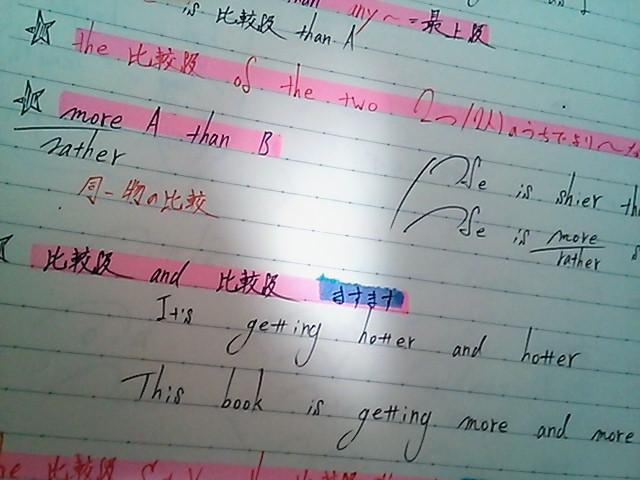 than any ~ = 最上級
is 比較級 than A
☆ the 比較級 of the two 2つ(2人)のうちでより〜な
☆ more A than B
rather
同一物の比較
He is shier
He is more
rather
比較級 and 比較級 ますます
It's getting hotter and hotter
This book is getting more and more
比較級 S+V